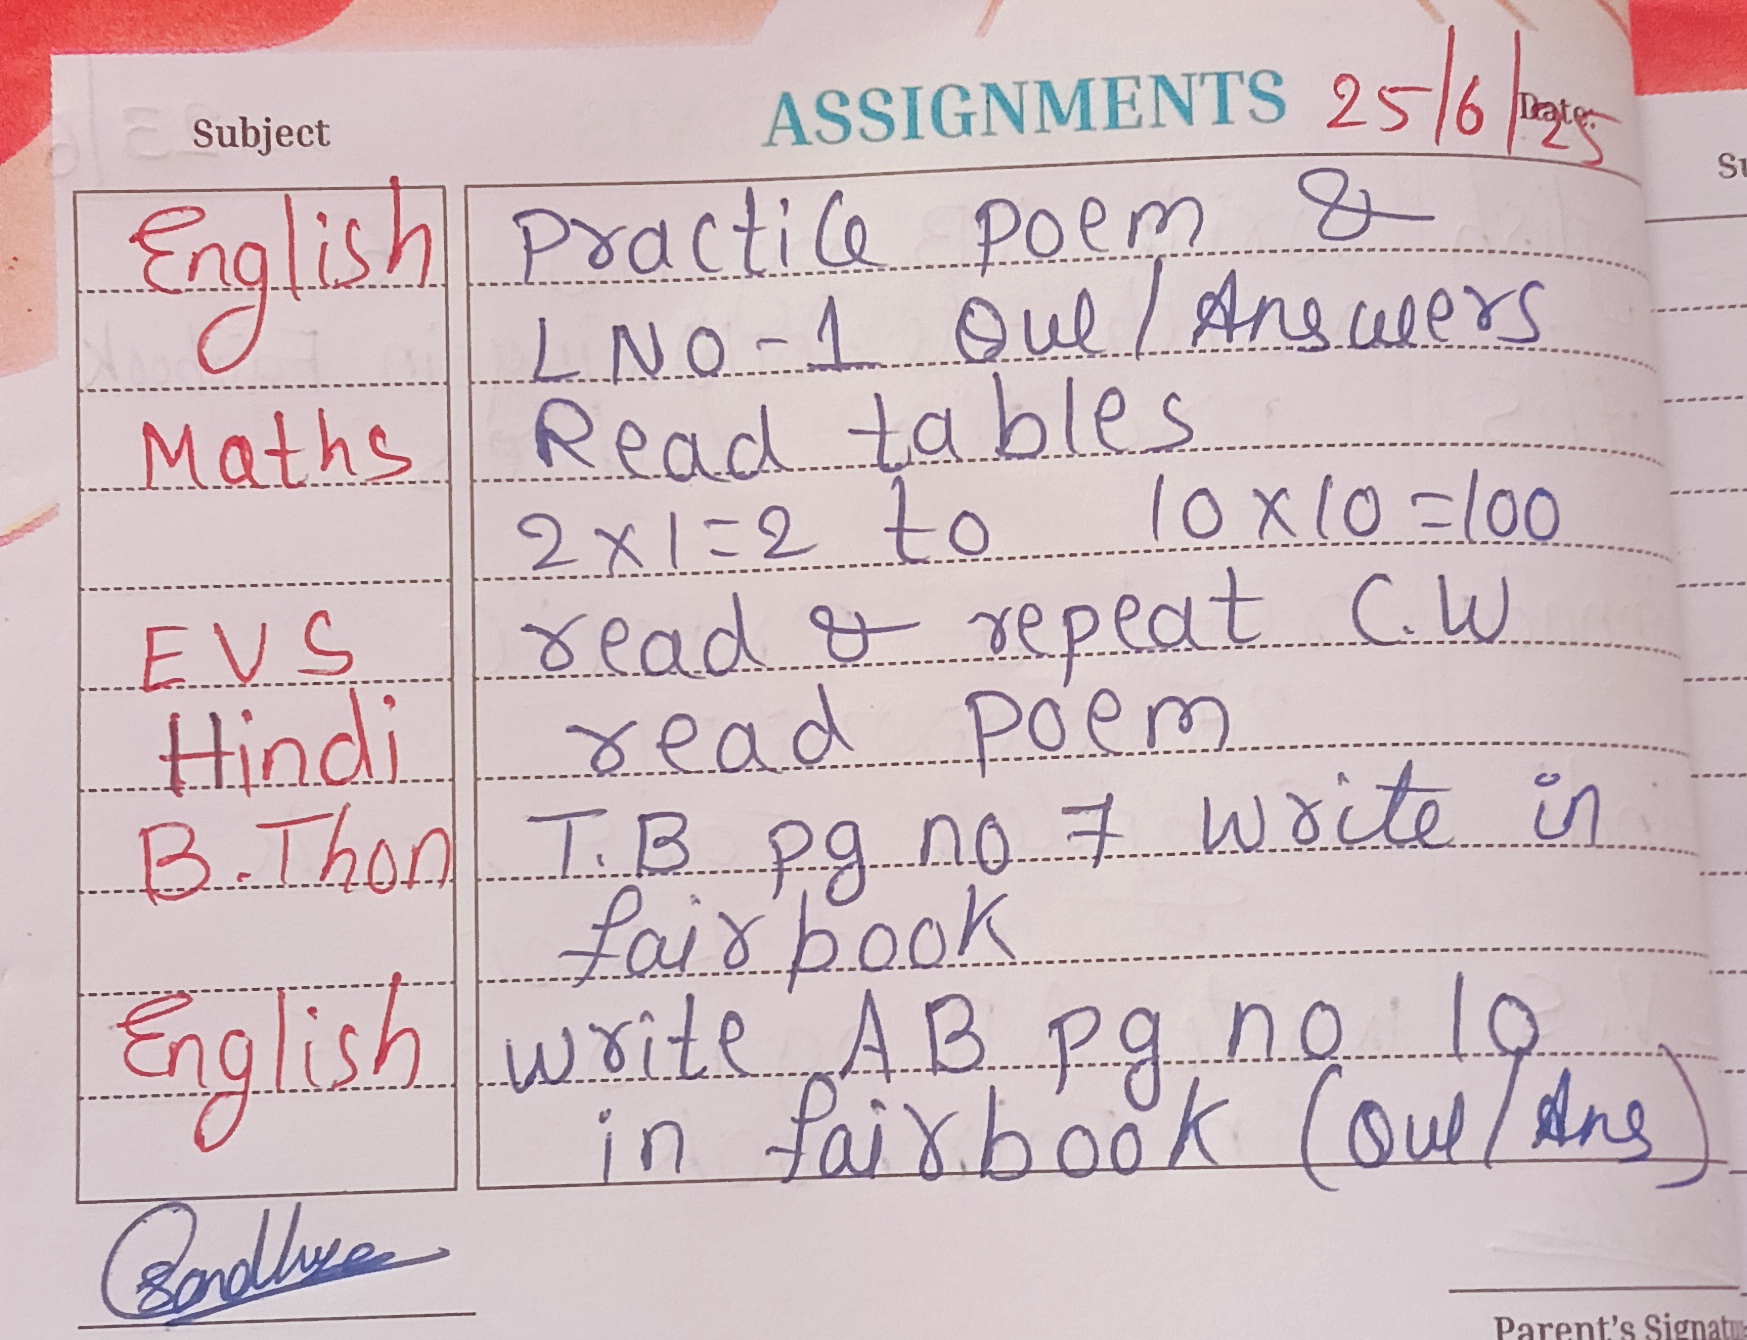 Subject ASSIGNMENTS Date: 25/6/25
English Practice poem &
L NO-1 Que/Answers
Maths Read tables
2x1=2 to 10x10=100
EVS read & repeat C.W
Hindi read poem
B.Thon T.B pg no 7 write in
fairbook
English write AB pg no 10
in fairbook (Que/Ans)
Sandhya
Parent's